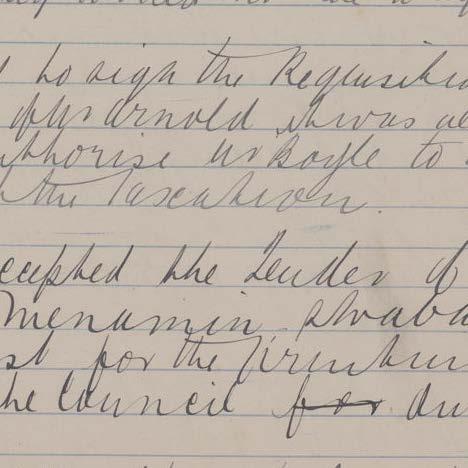 to sign the Requisition
of Mr Arnold it was al
uthorise Mr Boyle to
the Taxation.
ccepted the Tender of
Menamin Straba
st for the
he Council for du